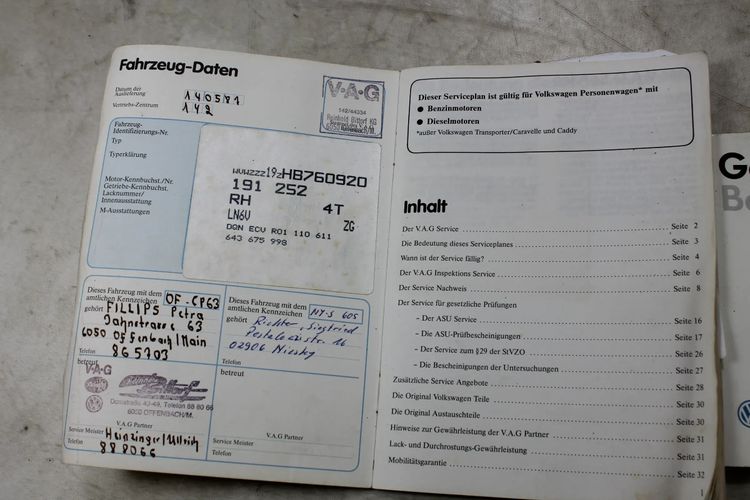 Fahrzeug-Daten
Datum der
Auslieferung
140581
Vertriebs-Zentrum
142
V·A·G
142/44334
Reinhold Bittorf KG
Fahrzeug-
Identifizierungs-Nr.
Typ
Typerklärung
Motor-Kennbuchst./Nr.
Getriebe-Kennbuchst.
Lacknummer/
Innenausstattung
M-Ausstattungen
WVWZZZ19ZHB760920
191 252
RH 4T
LN6V ZG
DQN ECV R01 110 611
643 675 998
Dieses Fahrzeug mit dem
amtlichen Kennzeichen
OF-CP63
gehört
FILLIPS Petra
Jahnstrasse 63
6050 Offenbach/Main
Telefon
865703
betreut
V·A·G
Dornstraße 43-49, Telefon 88 80 66
6050 OFFENBACH/M.
V.A.G Partner
Service Meister
Heinzinger/Ullrich
Telefon
888066
Dieses Fahrzeug mit dem
amtlichen Kennzeichen
NY-S 605
gehört
Richter, Siegfried
02906 Niesky
Telefon
betreut
V.A.G Partner
Service Meister
Telefon
Dieser Serviceplan ist gültig für Volkswagen Personenwagen* mit
● Benzinmotoren
● Dieselmotoren
*außer Volkswagen Transporter/Caravelle und Caddy
Inhalt
Der V.A.G Service Seite 2
Die Bedeutung dieses Serviceplanes Seite 3
Wann ist der Service fällig? Seite 4
Der V.A.G Inspektions Service Seite 6
Der Service Nachweis Seite 8
Der Service für gesetzliche Prüfungen
– Der ASU Service Seite 16
– Die ASU-Prüfbescheinigungen Seite 17
– Der Service zum §29 der StVZO Seite 26
– Die Bescheinigungen der Untersuchungen Seite 27
Zusätzliche Service Angebote Seite 28
Die Original Volkswagen Teile Seite 30
Die Original Austauschteile Seite 30
Hinweise zur Gewährleistung der V.A.G Partner Seite 31
Lack- und Durchrostungs-Gewährleistung Seite 31
Mobilitätsgarantie Seite 32
1